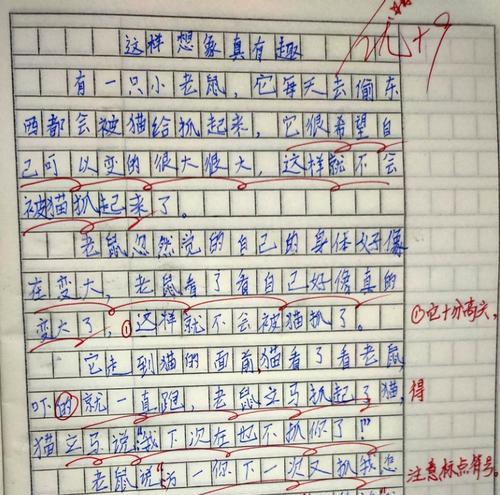 这样想象真有趣
优+9
有一只小老鼠，它每天去偷东
西都会被猫给抓起来，它很希望自
己可以变的很大很大，这样就不会
被猫抓起来了。
老鼠忽然觉的自己的身体好像
在变大，老鼠看了看自己好像真的
变大了，①这样就不会被猫抓了。
①它十分高兴，
它走到猫的面前，猫看了看老鼠，
吓的就一直跑，老鼠立马抓起了猫，
得
猫立马说"我下次在也不抓你了！"
老鼠说"为一你下一次又抓我怎
注意标点符号。